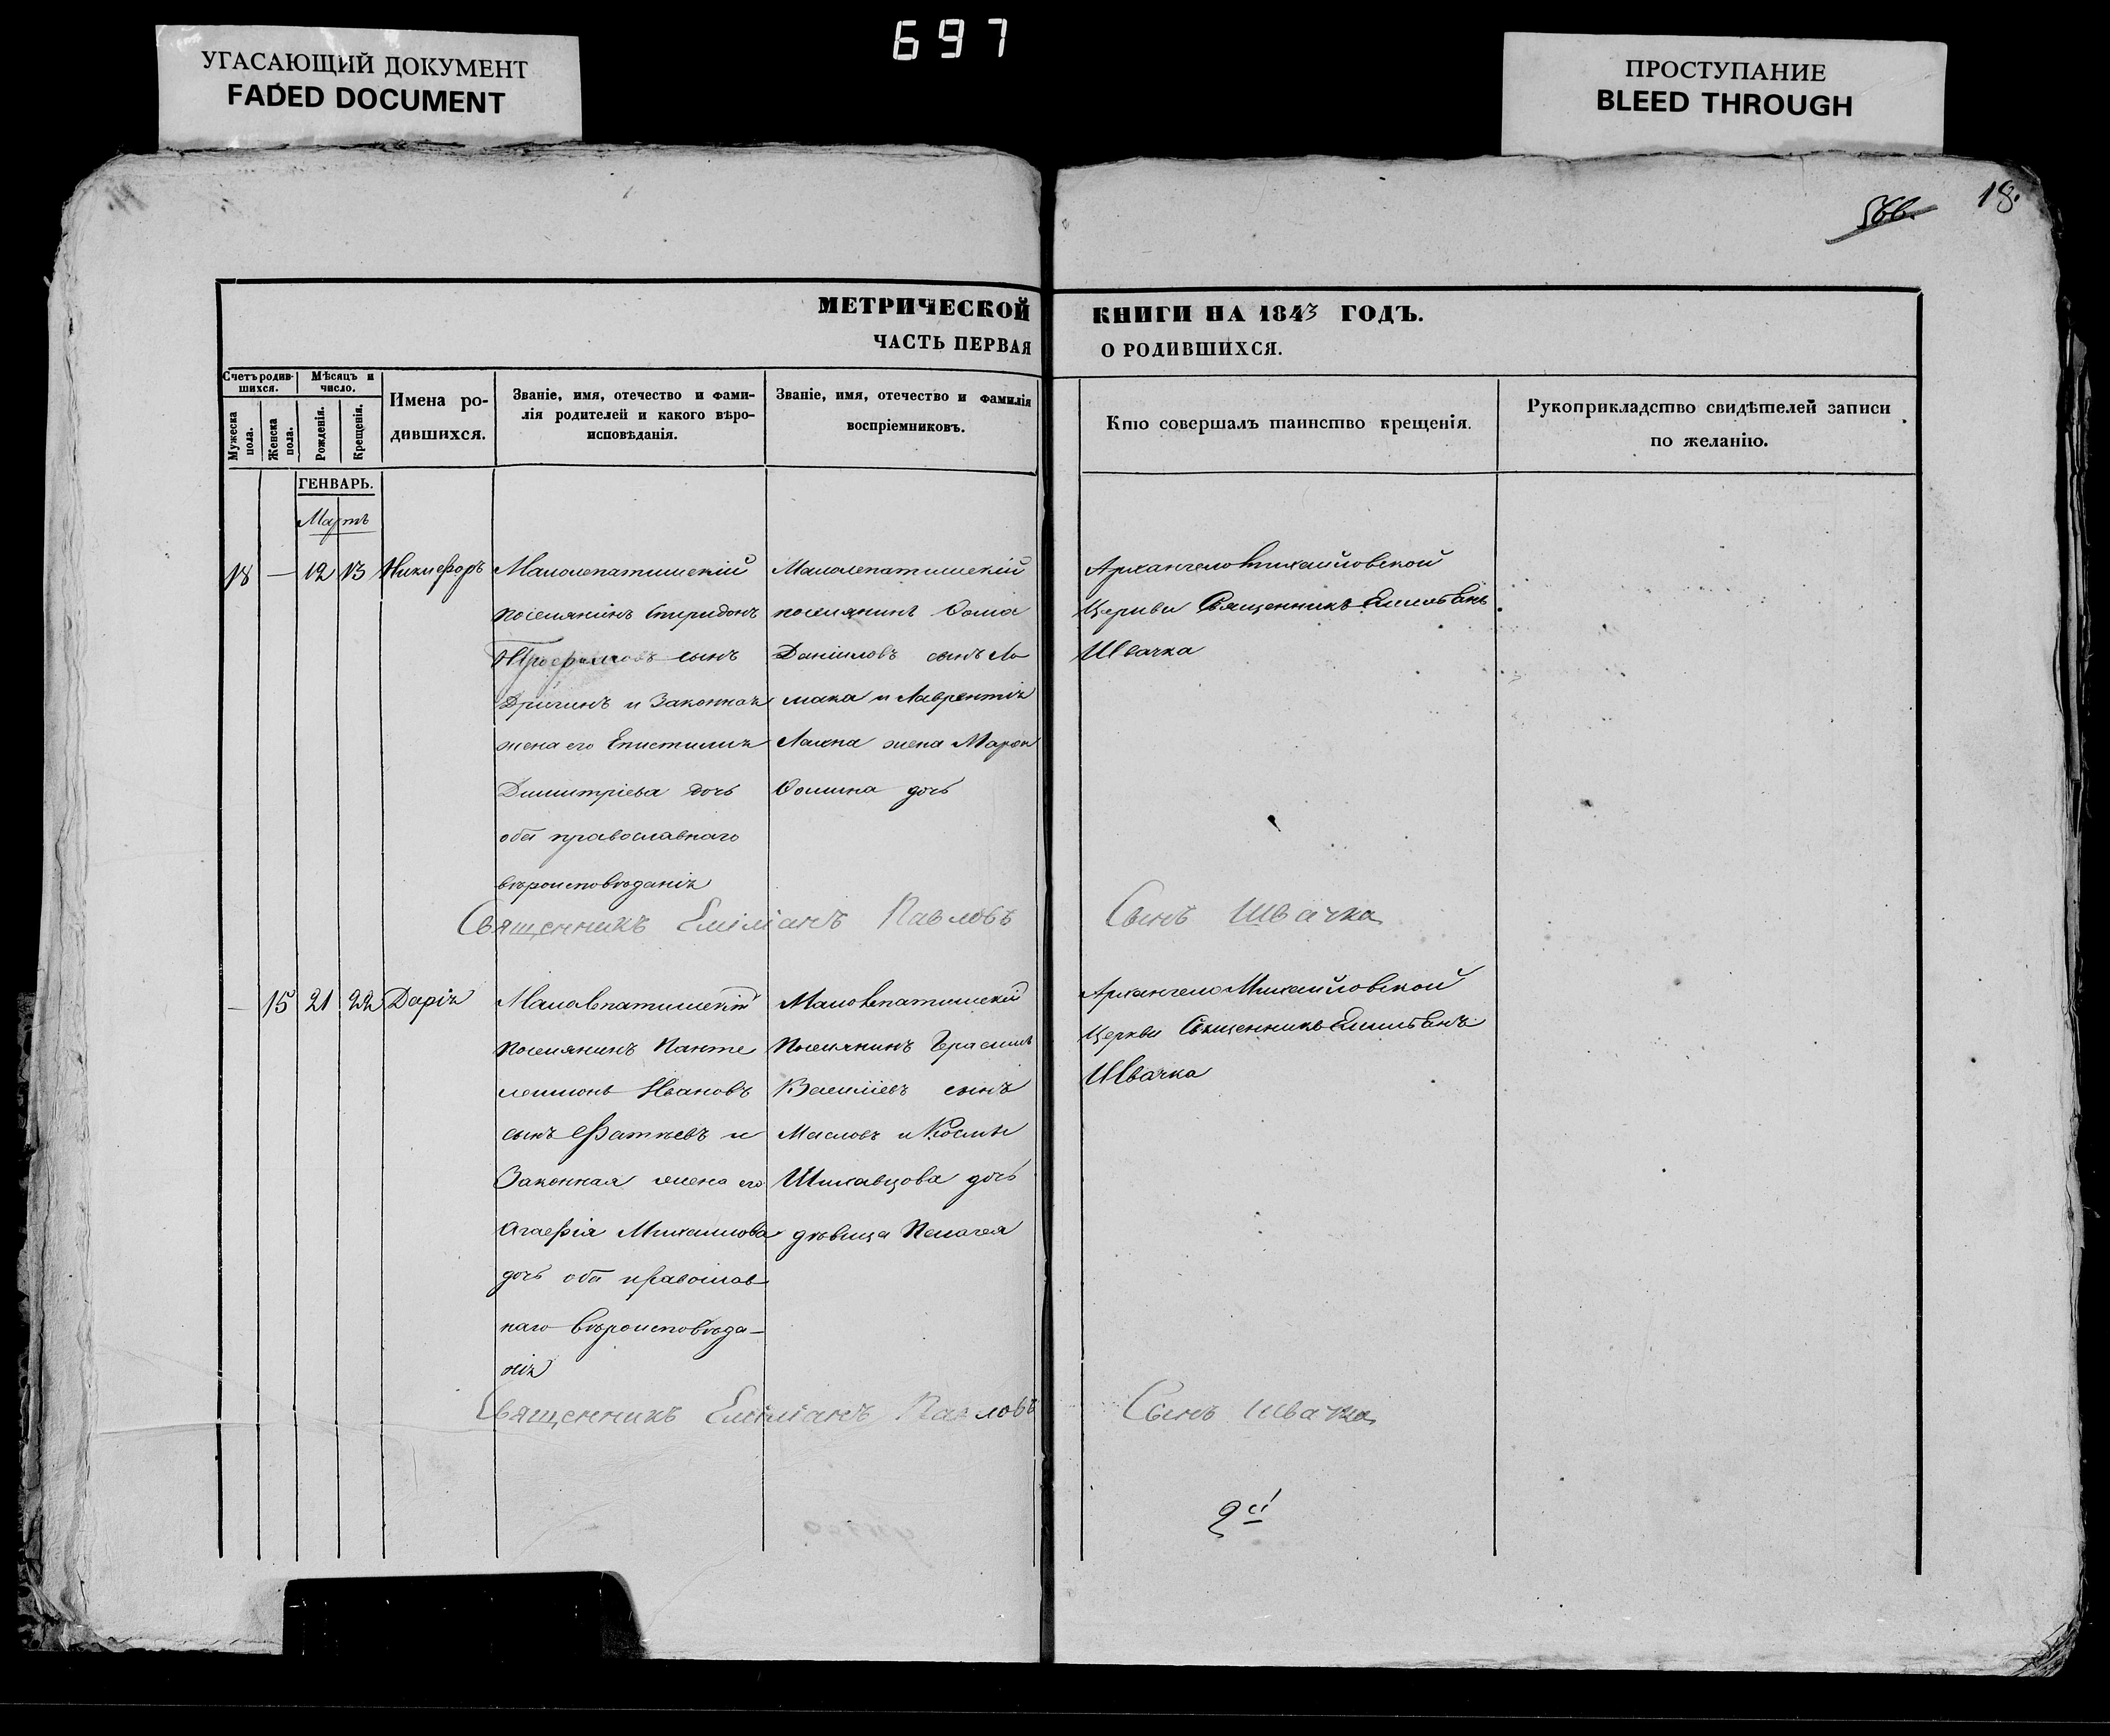 697
УГАСАЮЩИЙ ДОКУМЕНТ
FADED DOCUMENT
ПРОСТУПАНИЕ
BLEED THROUGH
566.
18.
МЕТРИЧЕСКОЙ
ЧАСТЬ ПЕРВАЯ
КНИГИ НА 1843 ГОДЪ.
О РОДИВШИХСЯ.
Счетъ родив-
шихся.
Мужеска
пола.
Женска
пола.
Мѣсяцъ и
число.
Рожденія.
Крещенія.
Имена ро-
дившихся.
Званіе, имя, отечество и фами-
лія родителей и какого вѣро-
исповѣданія.
Званіе, имя, отечество и фамилія
воспріемниковъ.
Кто совершалъ таинство крещенія.
Рукоприкладство свидѣтелей записи
по желанію.
ГЕНВАРЬ.
Мартъ
18 — 12 13 Никифоръ
поселянинъ Спиридонъ
сынъ
и Законная
жена его Епистимия
Димитріева дочь
оба православнаго
вѣроисповѣданія
поселянинъ Ѳома
Даниловъ сынъ Ло
мака и Лаврентія
жена
Ѳомина дочь
Архангело Михайловской
Церкви Священникъ Емиліанъ
Швачка
Священникъ Емиліанъ Павловъ
Сынъ Швачка
— 15 21 22 Дарія
Поселянинъ Панте
леимонъ Ивановъ
сынъ Фатѣевъ и
Законная жена его
Агафія Михаилова
дочь оба православ
наго вѣроисповѣда-
нія
Поселянинъ Герасимъ
Василіевъ сынъ
Масловъ и Космы
дочь
дѣвица Пелагея
Архангело Михайловской
Церкви Священникъ Емиліанъ
Швачка
Священникъ Емиліанъ Павловъ
Сынъ Швачка